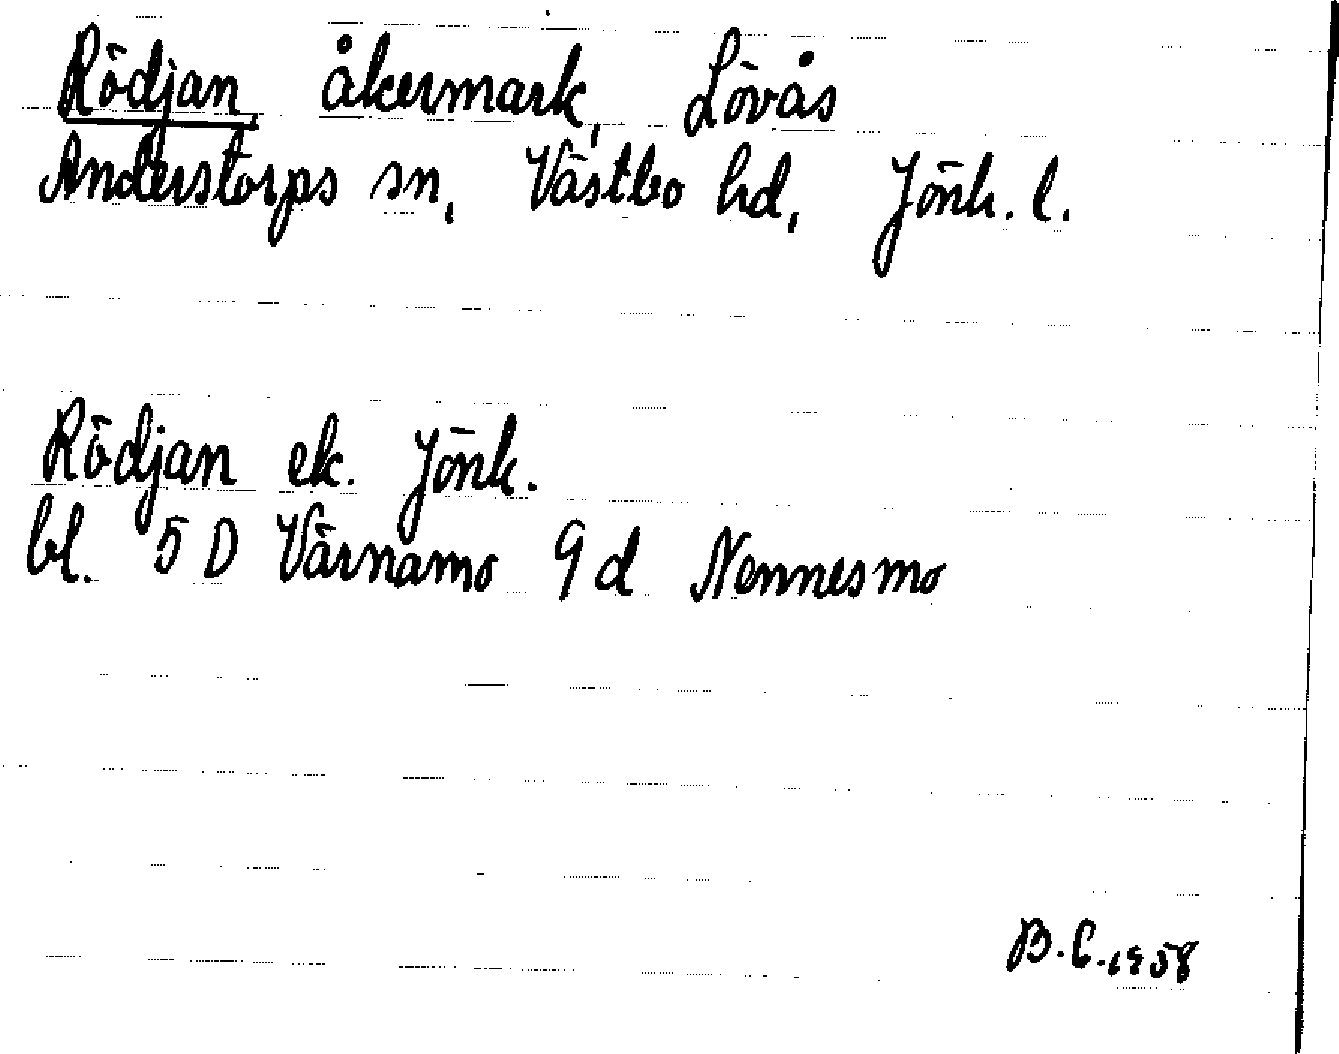 Rödjan, åkermark, Lövås
Anderstorps sn, Västbo hd, Jönk. l.
Rödjan ek. Jönk.
bl. 5 D Värnamo 9 d Nennesmo
B.C. 1958